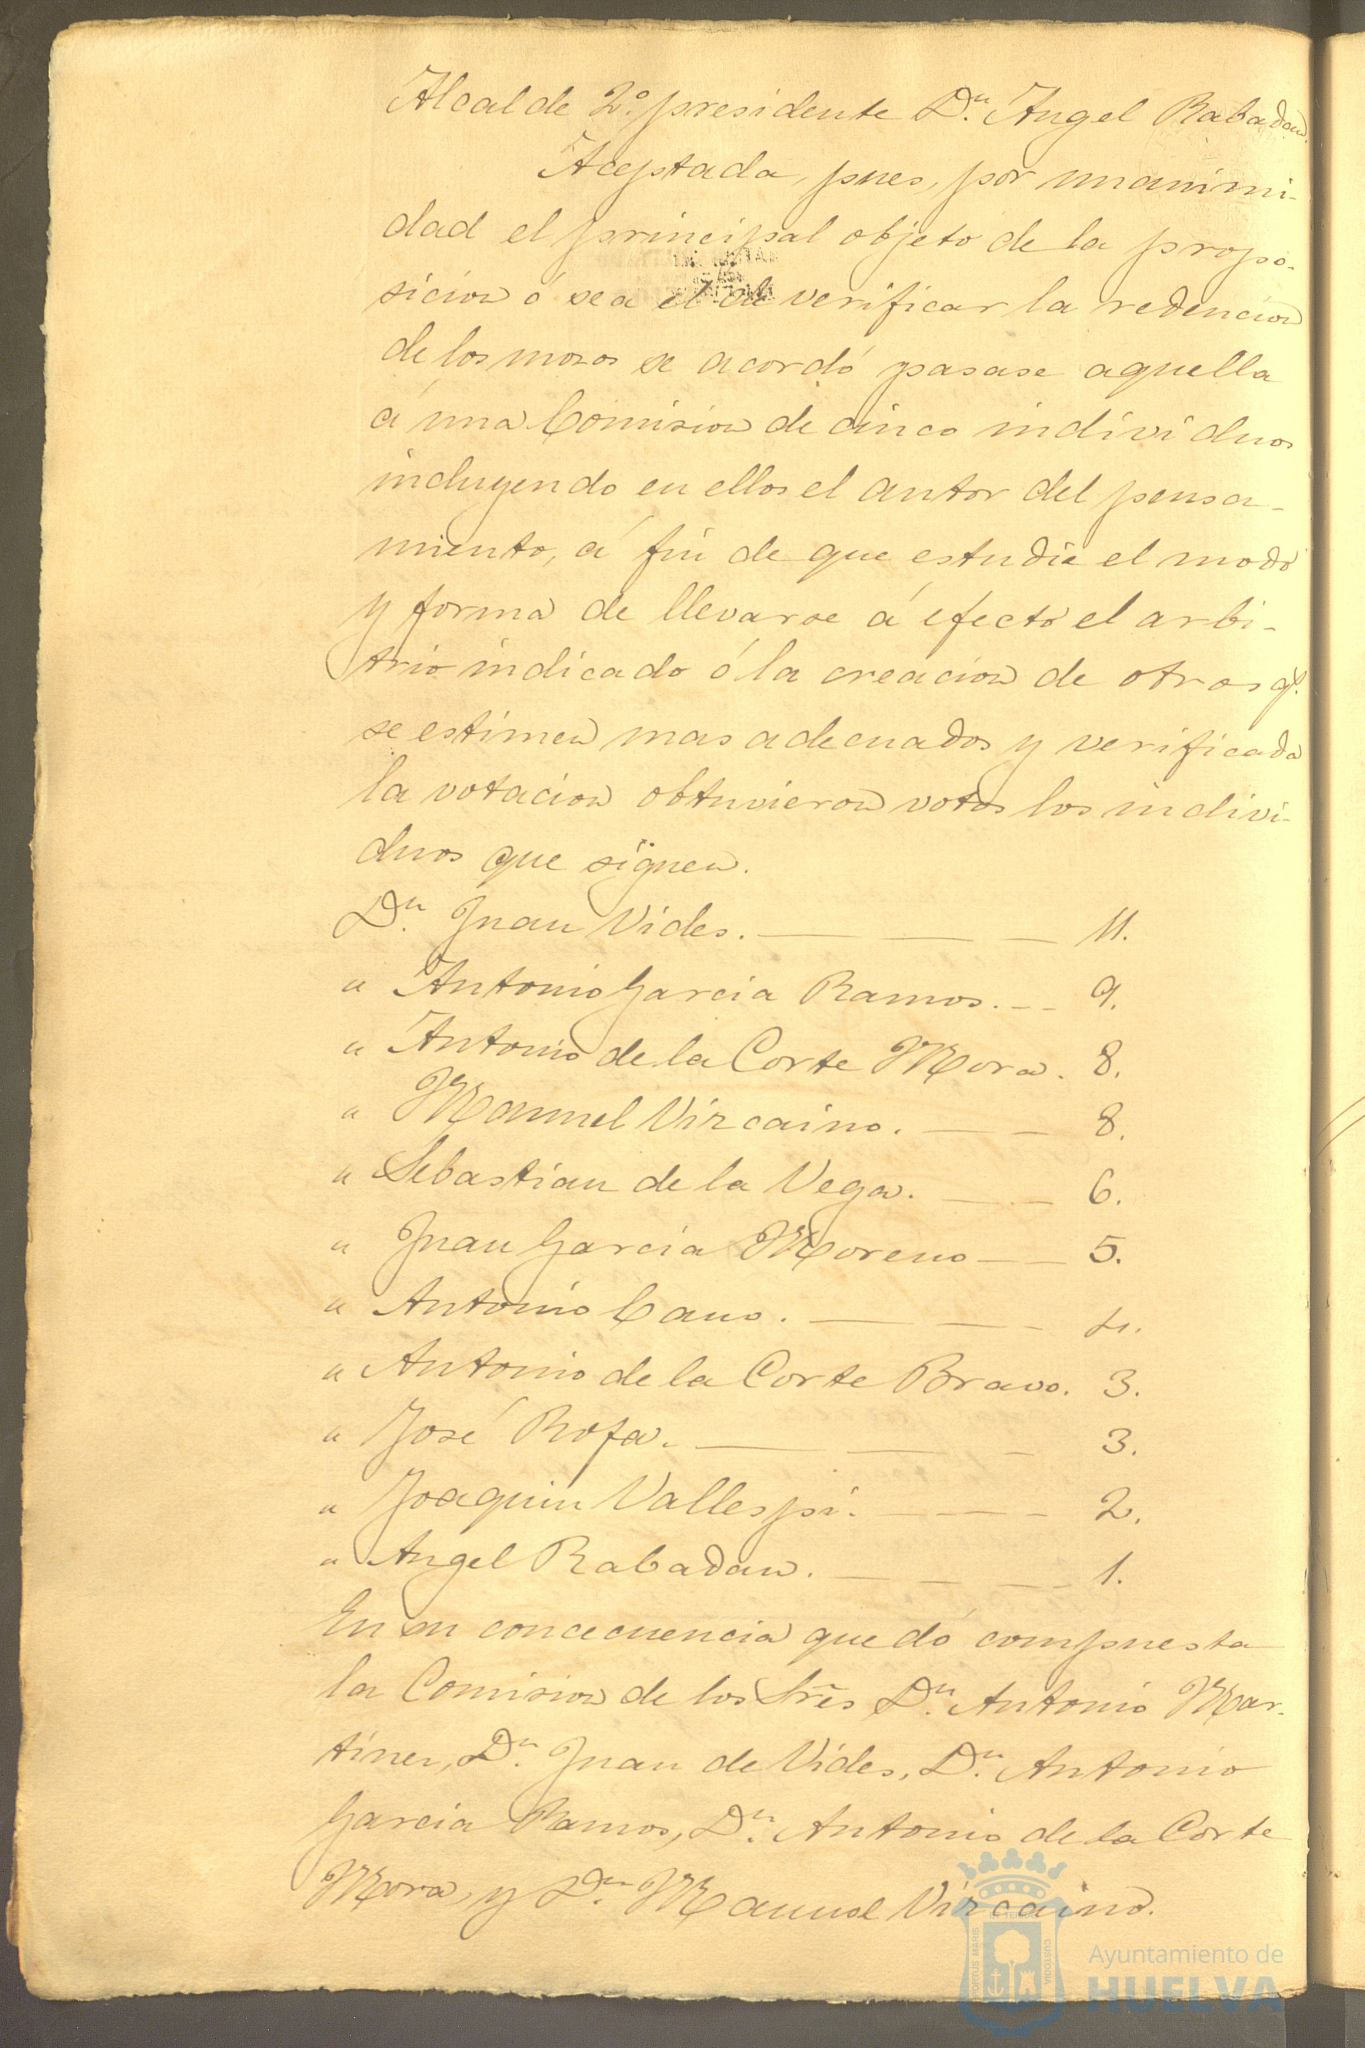 Alcalde 2º. presidente Dn. Angel Rabadan.
Aceptada, pues, por unanimi-
dad el principal objeto de la propo-
sicion ó sea el de verificar la redencion
de los mozos se acordó pasase aquella
á una Comision de cinco individuos
incluyendo en ellos el autor del pensa-
miento, á fin de que estudie el modo
y forma de llevarse á efecto el arbi-
trio indicado ó la creacion de otros qe.
se estimen mas adecuados y verificada
la votacion obtuvieron votos los indivi-
duos que siguen.
Dn. Juan Vides. — — — 11.
" Antonio Garcia Ramos. — — 9.
" Antonio de la Corte Mora. 8.
" Manuel Vizcaino. — — 8.
" Sebastian de la Vega. — — 6.
" Juan Garcia Moreno — — 5.
" Antonio Cano. — — — 4.
" Antonio de la Corte Bravo. 3.
" José Rofa. — — — 3.
" Joaquin Vallespi. — — — 2.
" Angel Rabadan. — — — 1.
En su concecuencia quedó compuesta
la Comision de los Sres Dn. Antonio Mar-
tinez, Dn. Juan de Vides, Dn. Antonio
Garcia Ramos, Dn. Antonio de la Corte
Mora, y Dn. Manuel Vizcaino.
PORTUS MARIS CUSTODIA
Ayuntamiento de
HUELVA